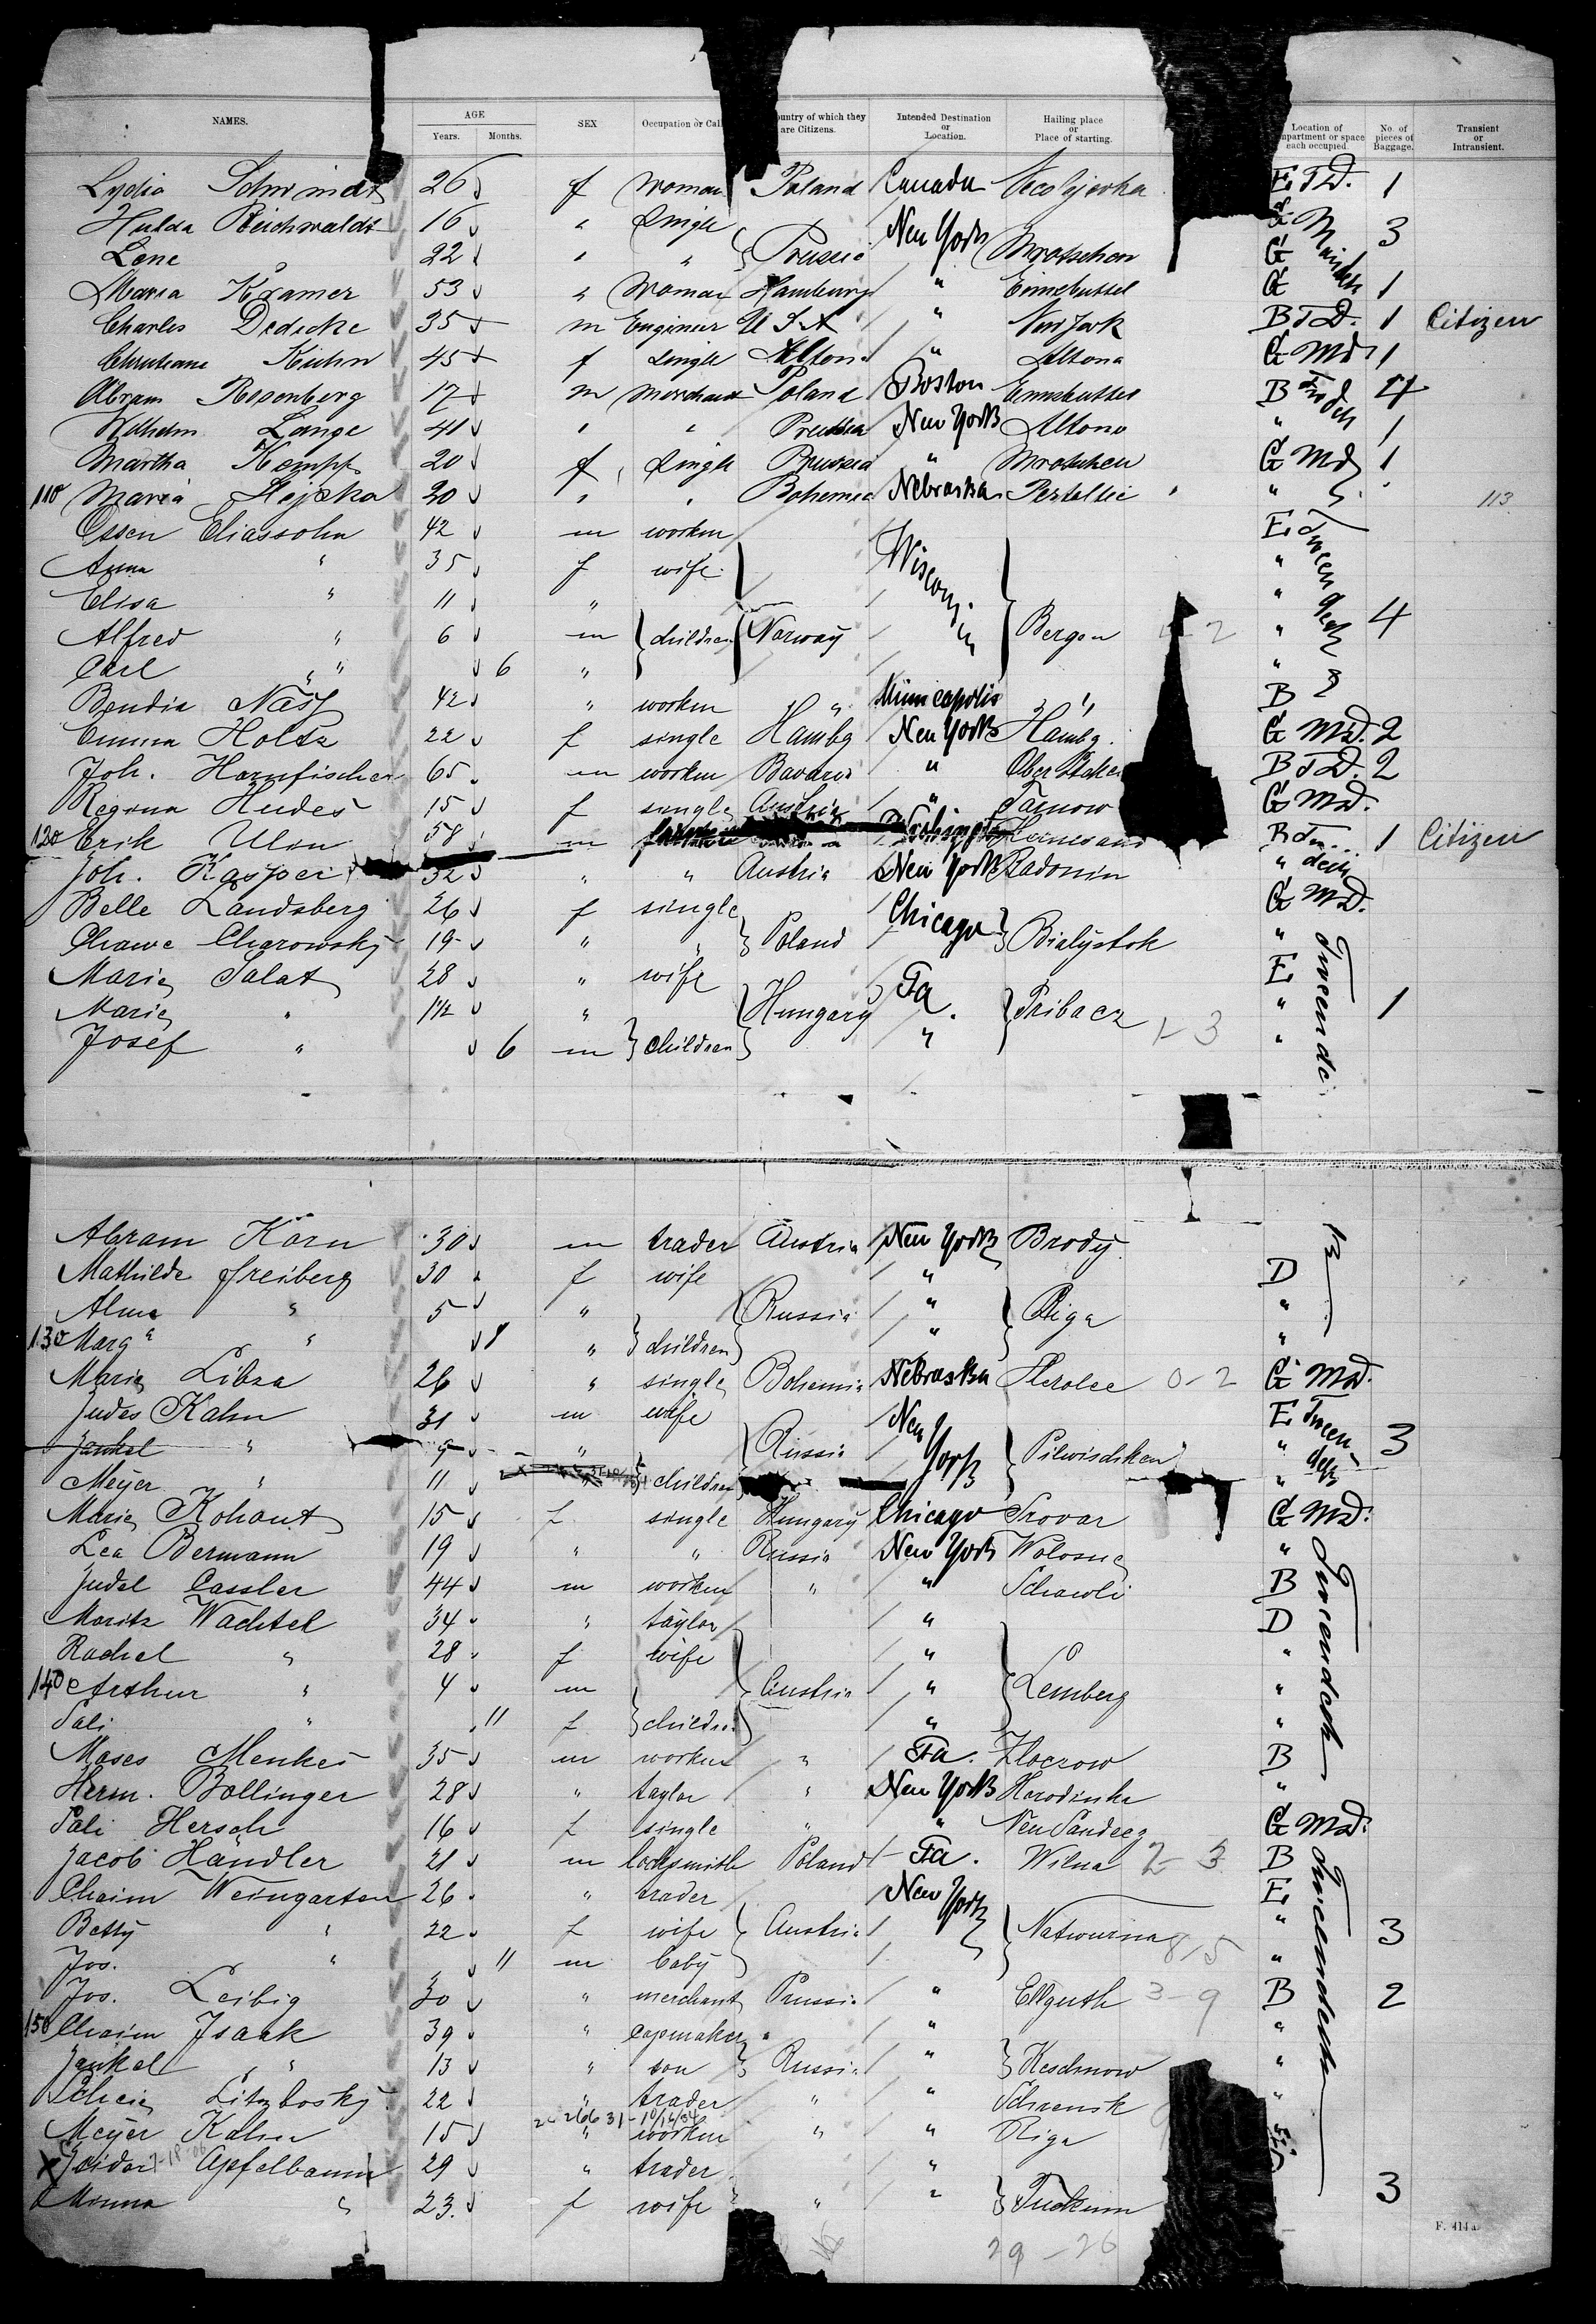 NAMES. AGE Years. Months. SEX Occupation or Cal Country of which they are Citizens. Intended Destination or Location. Hailing place or Place of starting. Location of compartment or space each occupied. No. of pieces of Baggage. Transient or Intransient.
Lydia Schwindt 26 f woman Poland Canada E TD. 1
Hulda Reichwaldt 16 " Single New York 3
Lene " 22 " " } Prussia Mrotschen G
Maria Kramer 53 " Woman Hamburg " Eimsbuttel G 1
Charles Dedicke 35 m Engineer U S A " New York B TD. 1 Citizen
Christiane Kuhn 45 f Single Altona " Altona G Md 1
Abram Rosenberg 17 m merchant Poland Boston Eimsbuttel B 4
Wilhelm Lange 41 " " Prussia New York Altona " 1
Martha Kempf 20 f Single Prussia " Mrotschen G Md 1
110 Maria Hejska 20 " " Bohemia Nebraska " 113
Ossen Eliassohn 42 m worker E Tween deck
Anna " 35 f wife Wisconsin "
Elisa " 11 " "
Alfred " 6 m } children { Norway Bergen " 4
Carl " 6 " "
Bendix 42 " worker " Minneapolis " B
Emma Holtz 22 f single Hambg New York Hambg. G Md. 2
Joh. Harnfischer 65 m worker Bavaria " Ober B TD. 2
Regina Hudes 15 f single Austria " Tarnow G Md.
120 Erik Ulin 58 m 1 Citizen
Joh. Kasper 32 " " Austria New York Radonin " deck
Belle Landsberg 26 f single Chicago G Md.
Chawe Charowsky 19 " " } Poland } Bialystok "
Marie Salat 28 " wife Fa. E Tweendeck
Marie " 11/2 " } Hungary } Pribacz " 1
Josef " 6 m } children " 1-3 "
Abram Korn 30 m trader Austria New York Brody
Mathilde Freiberg 30 f wife " D
Alma " 5 " } Russia " } Riga "
130 Marg " 8 " } children " "
Marie Libra 26 " single Bohemia Nebraska 0-2 G Md.
Judes Kahn 31 m wife New York E Tween deck
Jankel " 9 " } Russia } Pilwischken " 3
Meyer " 11 } children "
Marie Kohout 15 f single Hungary Chicago Srovar G Md.
Lea Bermann 19 " " Russia New York "
Judel Cassler 44 m worker " " Schawli B Tweendeck
Moritz Wachtel 34 " taylor " D
Rachel " 28 f wife " "
140 Arthur " 4 m } Austria " } Lemberg "
Sali " 11 f } children " "
Moses Menkes 35 m worker " Fa. Zloczow B
Herm. Bollinger 28 " taylor " New York Horodinka "
Sali Hersch 16 f single " " Neu Sandecz G Md.
Jacob Handler 21 m locksmith Poland Fa. Wilna 2-3 B Tweendeck
Chaim Weingarten 26 " trader New York E
Betty " 22 f wife } Austria } Natwurna 8/5 " 3
Jos. " 11 m baby "
Jos. Leibig 30 " merchant Prussia " Ellguth 3-9 B 2
150 Chaim Isaak 39 " capmaker " "
Jankel " 13 " son } Russia " } "
Litzbosky 22 " trader " " Schrensk "
Meyer Kahn 15 " worker " " Riga
X Isidor Apfelbaum 29 " trader "
Minna " 23 f wife " " } Tuckum 3
29-26
F. 414 a